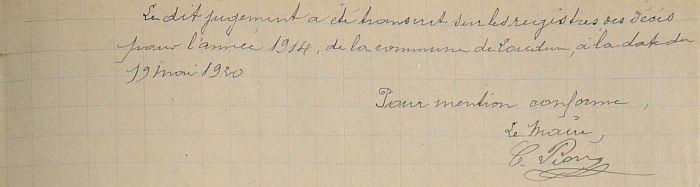 Le dit jugement a été transcrit sur les registres des décès
pour l'année 1914, de la commune de Loudun, à la date du
19 mai 1920
Pour mention conforme,
Le Maire,